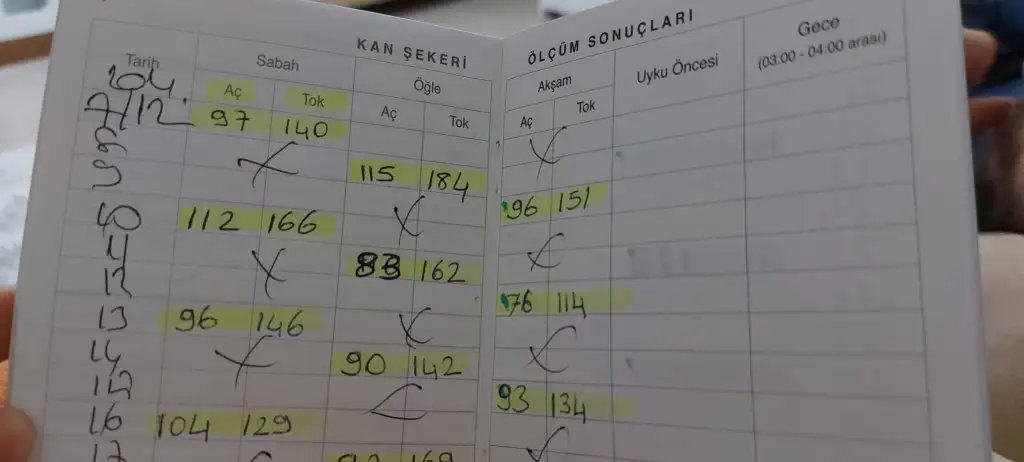 KAN ŞEKERİ ÖLÇÜM SONUÇLARI
Tarih Sabah Öğle Akşam Uyku Öncesi Gece
(03:00 - 04:00 arası)
Aç Tok Aç Tok Aç Tok
104
7/12 97 140
8 115 184
9 96 151
10 112 166
11 83 162
12 76 114
13 96 146
14 90 142
15 93 134
16 104 129
17 92 169